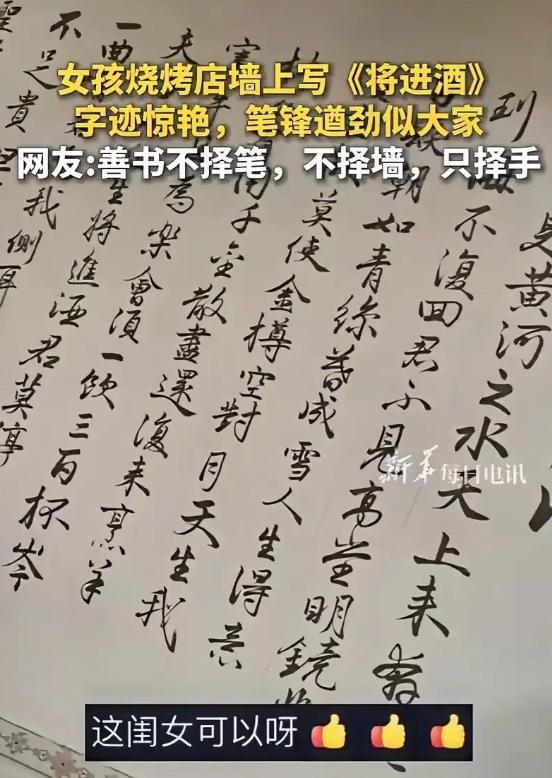 女孩烧烤店墙上写《将进酒》
字迹惊艳，笔锋遒劲似大家
网友:善书不择笔，不择墙，只择手
黃河之水天上来奔
到海不復回君不見高堂明鏡
朝如青絲暮成雪人生得意
莫使金樽空對月天生我
用千金散盡還復来烹羊
為樂會須一飲三百杯岑
夫生將進酒君莫停
一曲我側耳
不足貴
新华每日电讯
这闺女可以呀👍👍👍